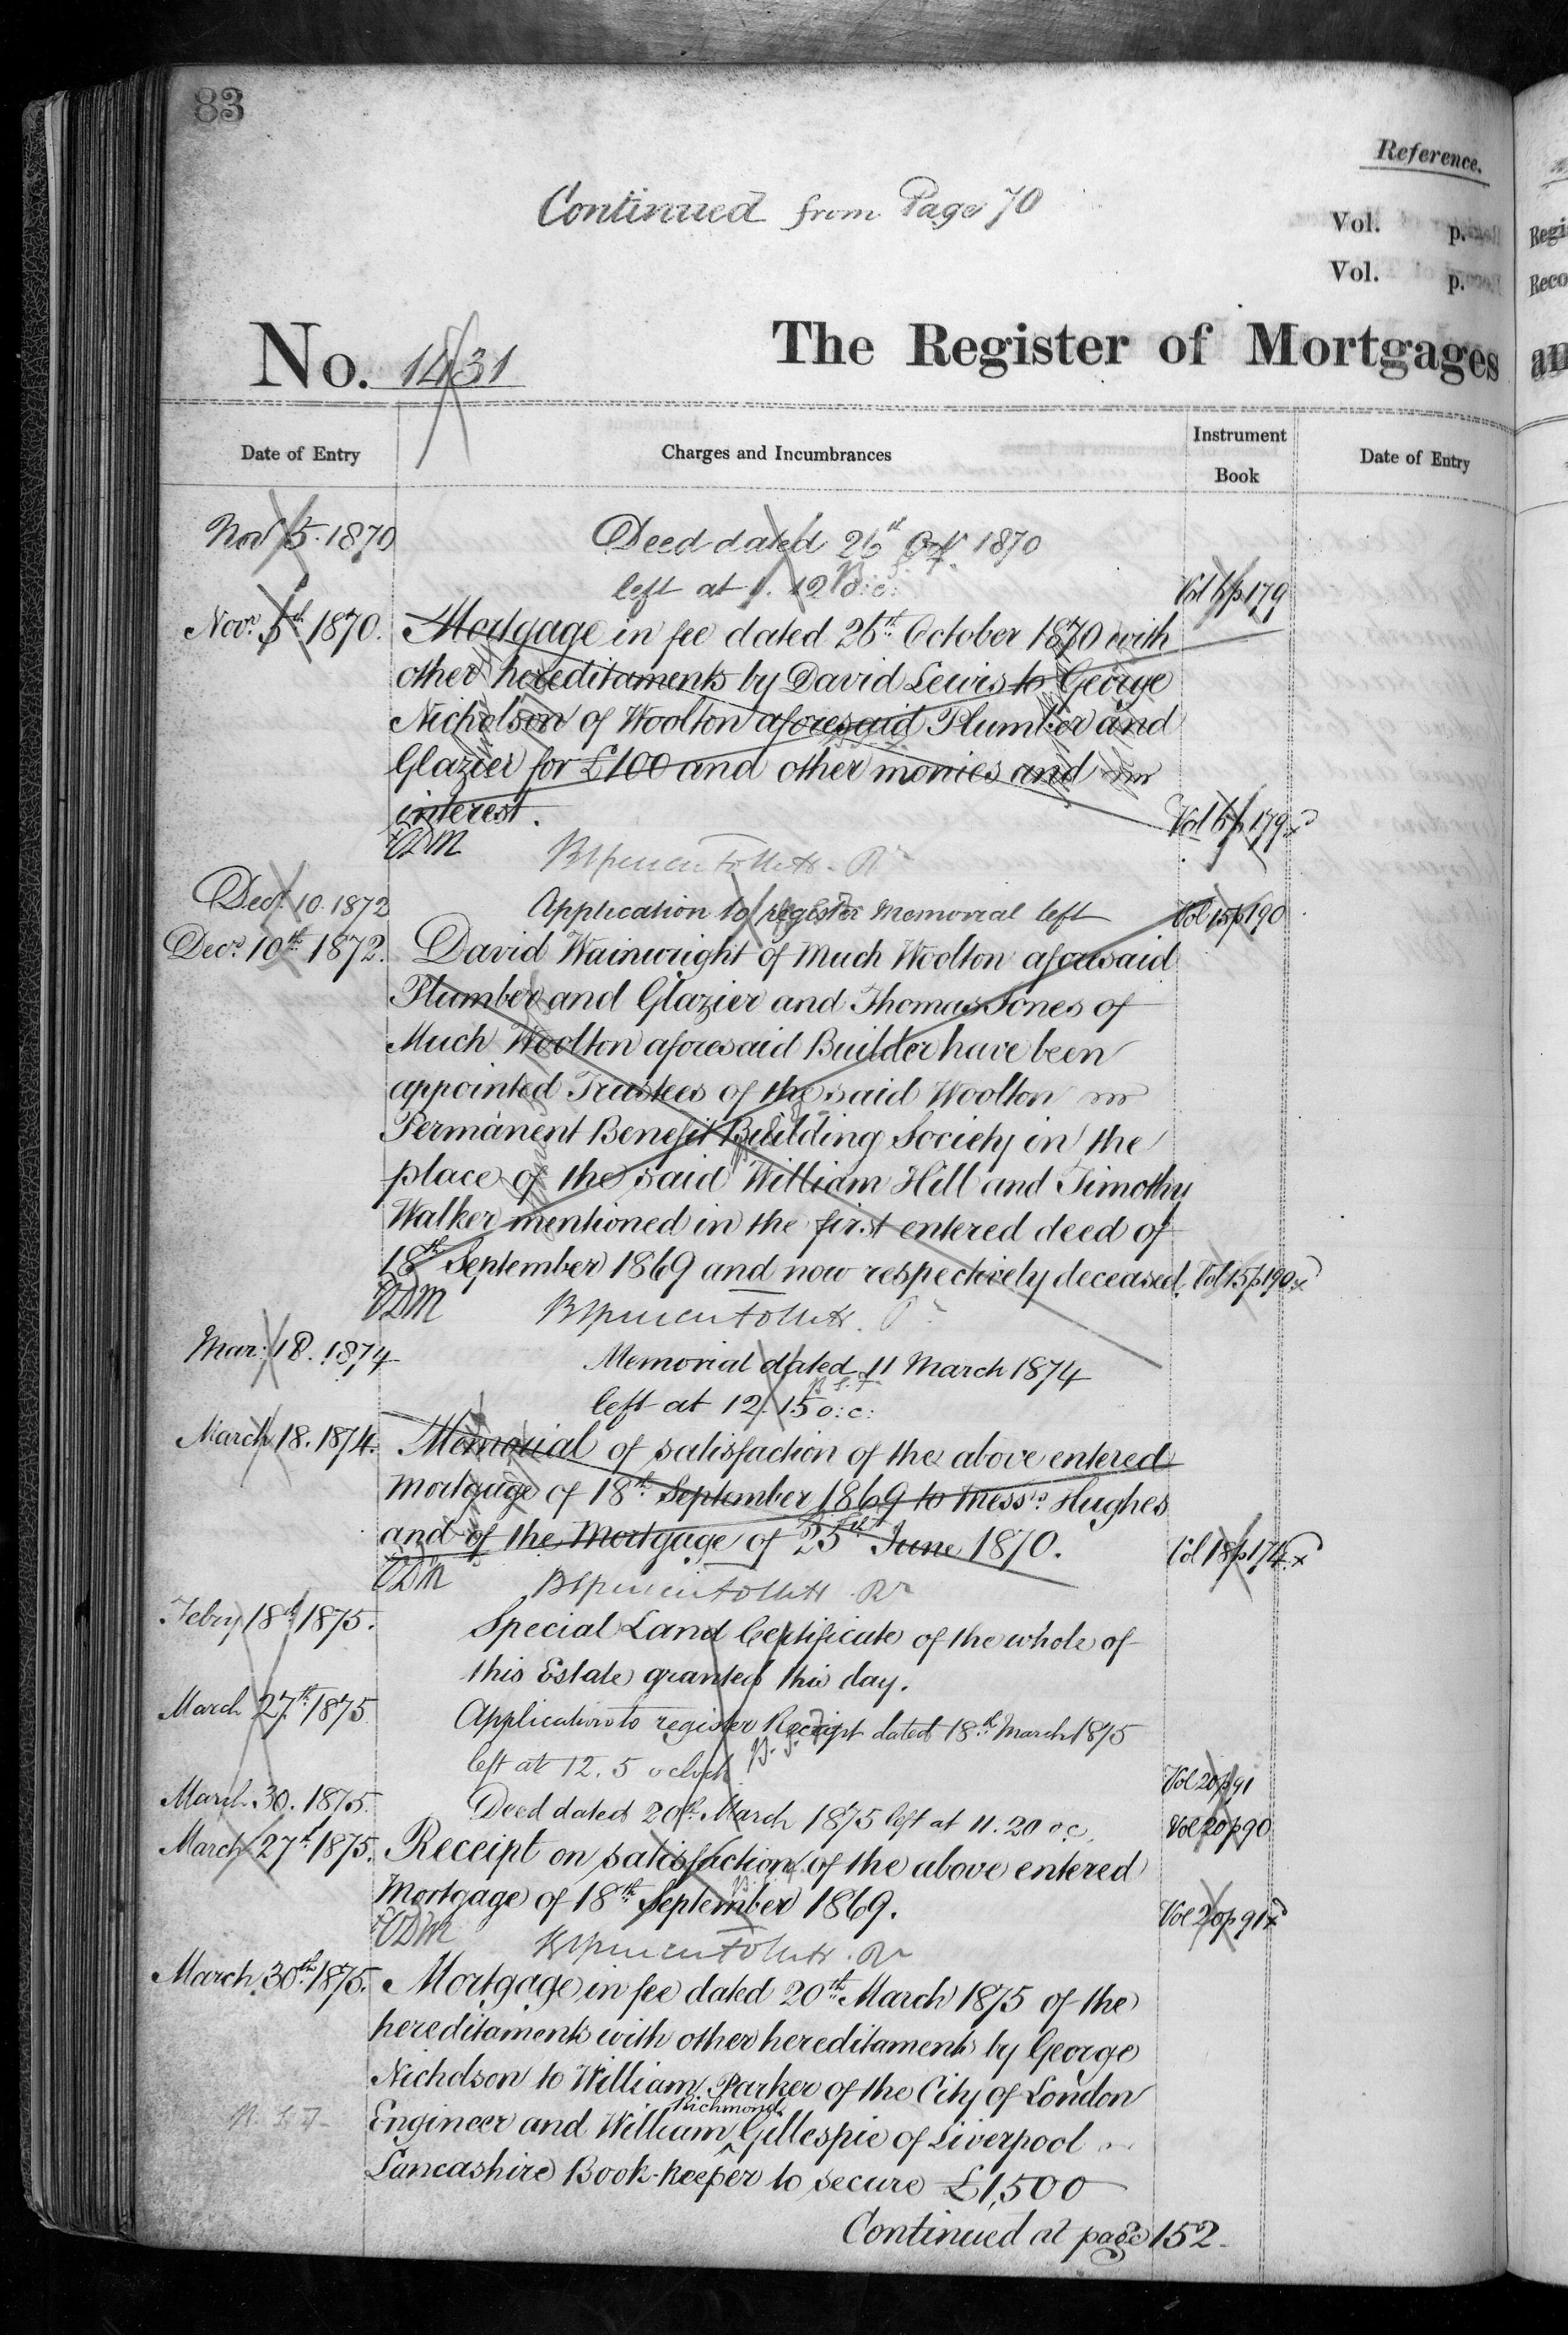 83
Reference.
Continued from Page 70
Vol. p.
Vol. p.
No. 1431
The Register of Mortgages
Date of Entry
Charges and Incumbrances
Instrument
Book
Date of Entry
Nov 5. 1870
Deed dated 26th Oct 1870
left at 1. 12 o:c:
Vol 6 p 179
Novr. 5th 1870. Mortgage in fee dated 26th October 1870 with
other hereditaments by David Lewis to George
Nicholson of Woolton aforesaid Plumber and
Glazier for £100 and other monies and
interest.
Vol 6 p 179 x
Decr. 10. 1872
Application to register Memorial left
Vol 15 p 190
Decr. 10th 1872. David Wainwright of Much Woolton aforesaid
Plumber and Glazier and Thomas Jones of
Much Woolton aforesaid Builder have been
appointed Trustees of the said Woolton
Permanent Benefit Building Society in the
place of the said William Hill and Timothy
Walker mentioned in the first entered deed of
18th September 1869 and now respectively deceased. Vol 15 p 190 x
Mar: 18. 1874
Memorial dated 11 March 1874
left at 12. 15 o:c:
March 18. 1874. Memorial of satisfaction of the above entered
Mortgage of 18th September 1869 to Messrs. Hughes
and of the Mortgage of 25th June 1870. Vol 18 p 174 x
Febry 18th 1875. Special Land Certificate of the whole of
this Estate granted this day.
March 27th 1875 Application to register Receipt dated 18th March 1875
left at 12. 5 oclock
Vol 20 p 91
March 30. 1875. Deed dated 20th March 1875 left at 11. 20 o c. Vol 20 p 90
March 27th 1875. Receipt on satisfaction of the above entered
Mortgage of 18th September 1869. Vol 20 p 91 x
March 30th 1875. Mortgage in fee dated 20th March 1875 of the
hereditaments with other hereditaments by George
Nicholson to William Parker of the City of London
Richmond
Engineer and William ^ Gillespie of Liverpool
Lancashire Book-keeper to secure £1,500
Continued at page 152